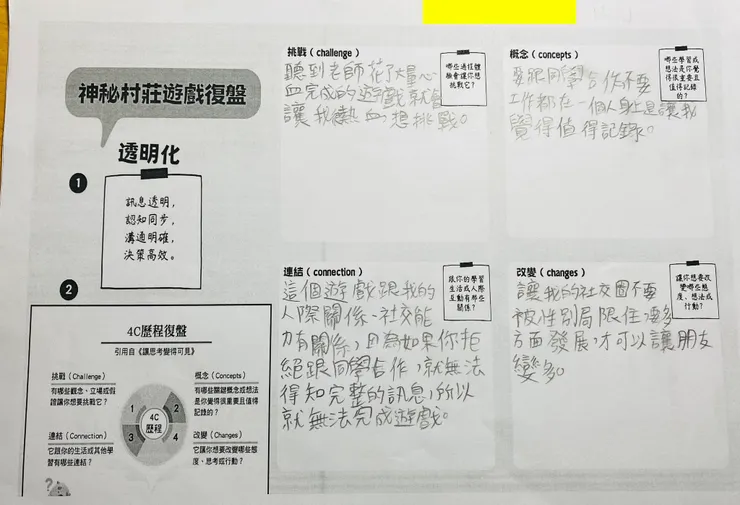 神秘村莊遊戲復盤
透明化
1
訊息透明，
認知同步，
溝通明確，
決策高效。
2
4C歷程復盤
引用自《讓思考變得可見》
挑戰（Challenge）
有哪些觀念、立場或假
設讓你想要挑戰它？
概念（Concepts）
有哪些關鍵概念或想法
是你覺得很重要且值得
記錄的？
1
2
3
4
4C
歷程
連結（Connection）
它跟你的生活或其他學
習有哪些連結？
改變（Changes）
它讓你想要改變哪些態
度、思考或行動？
挑戰（challenge）
哪些過程體
驗會讓你想
挑戰它？
聽到老師花了大量心
血完成的遊戲就會
讓我熱血，想挑戰。
概念（concepts）
哪些學習或
想法是你覺
得很重要且
值得記錄
的？
要跟同學合作不要
工作都在一個人身上是讓我
覺得值得記錄。
連結（connection）
跟你的學習
生活或人際
互動有那些
關係？
這個遊戲跟我的
人際關係、社交能
力有關係，因為如果你拒
絕跟同學合作，就無法
得知完整的訊息，所以
就無法完成遊戲。
改變（changes）
讓你想要改
變哪些態
度、想法或
行動？
讓我的社交圈不要
被性別局限住，要多
方面發展，才可以讓朋友
變多。